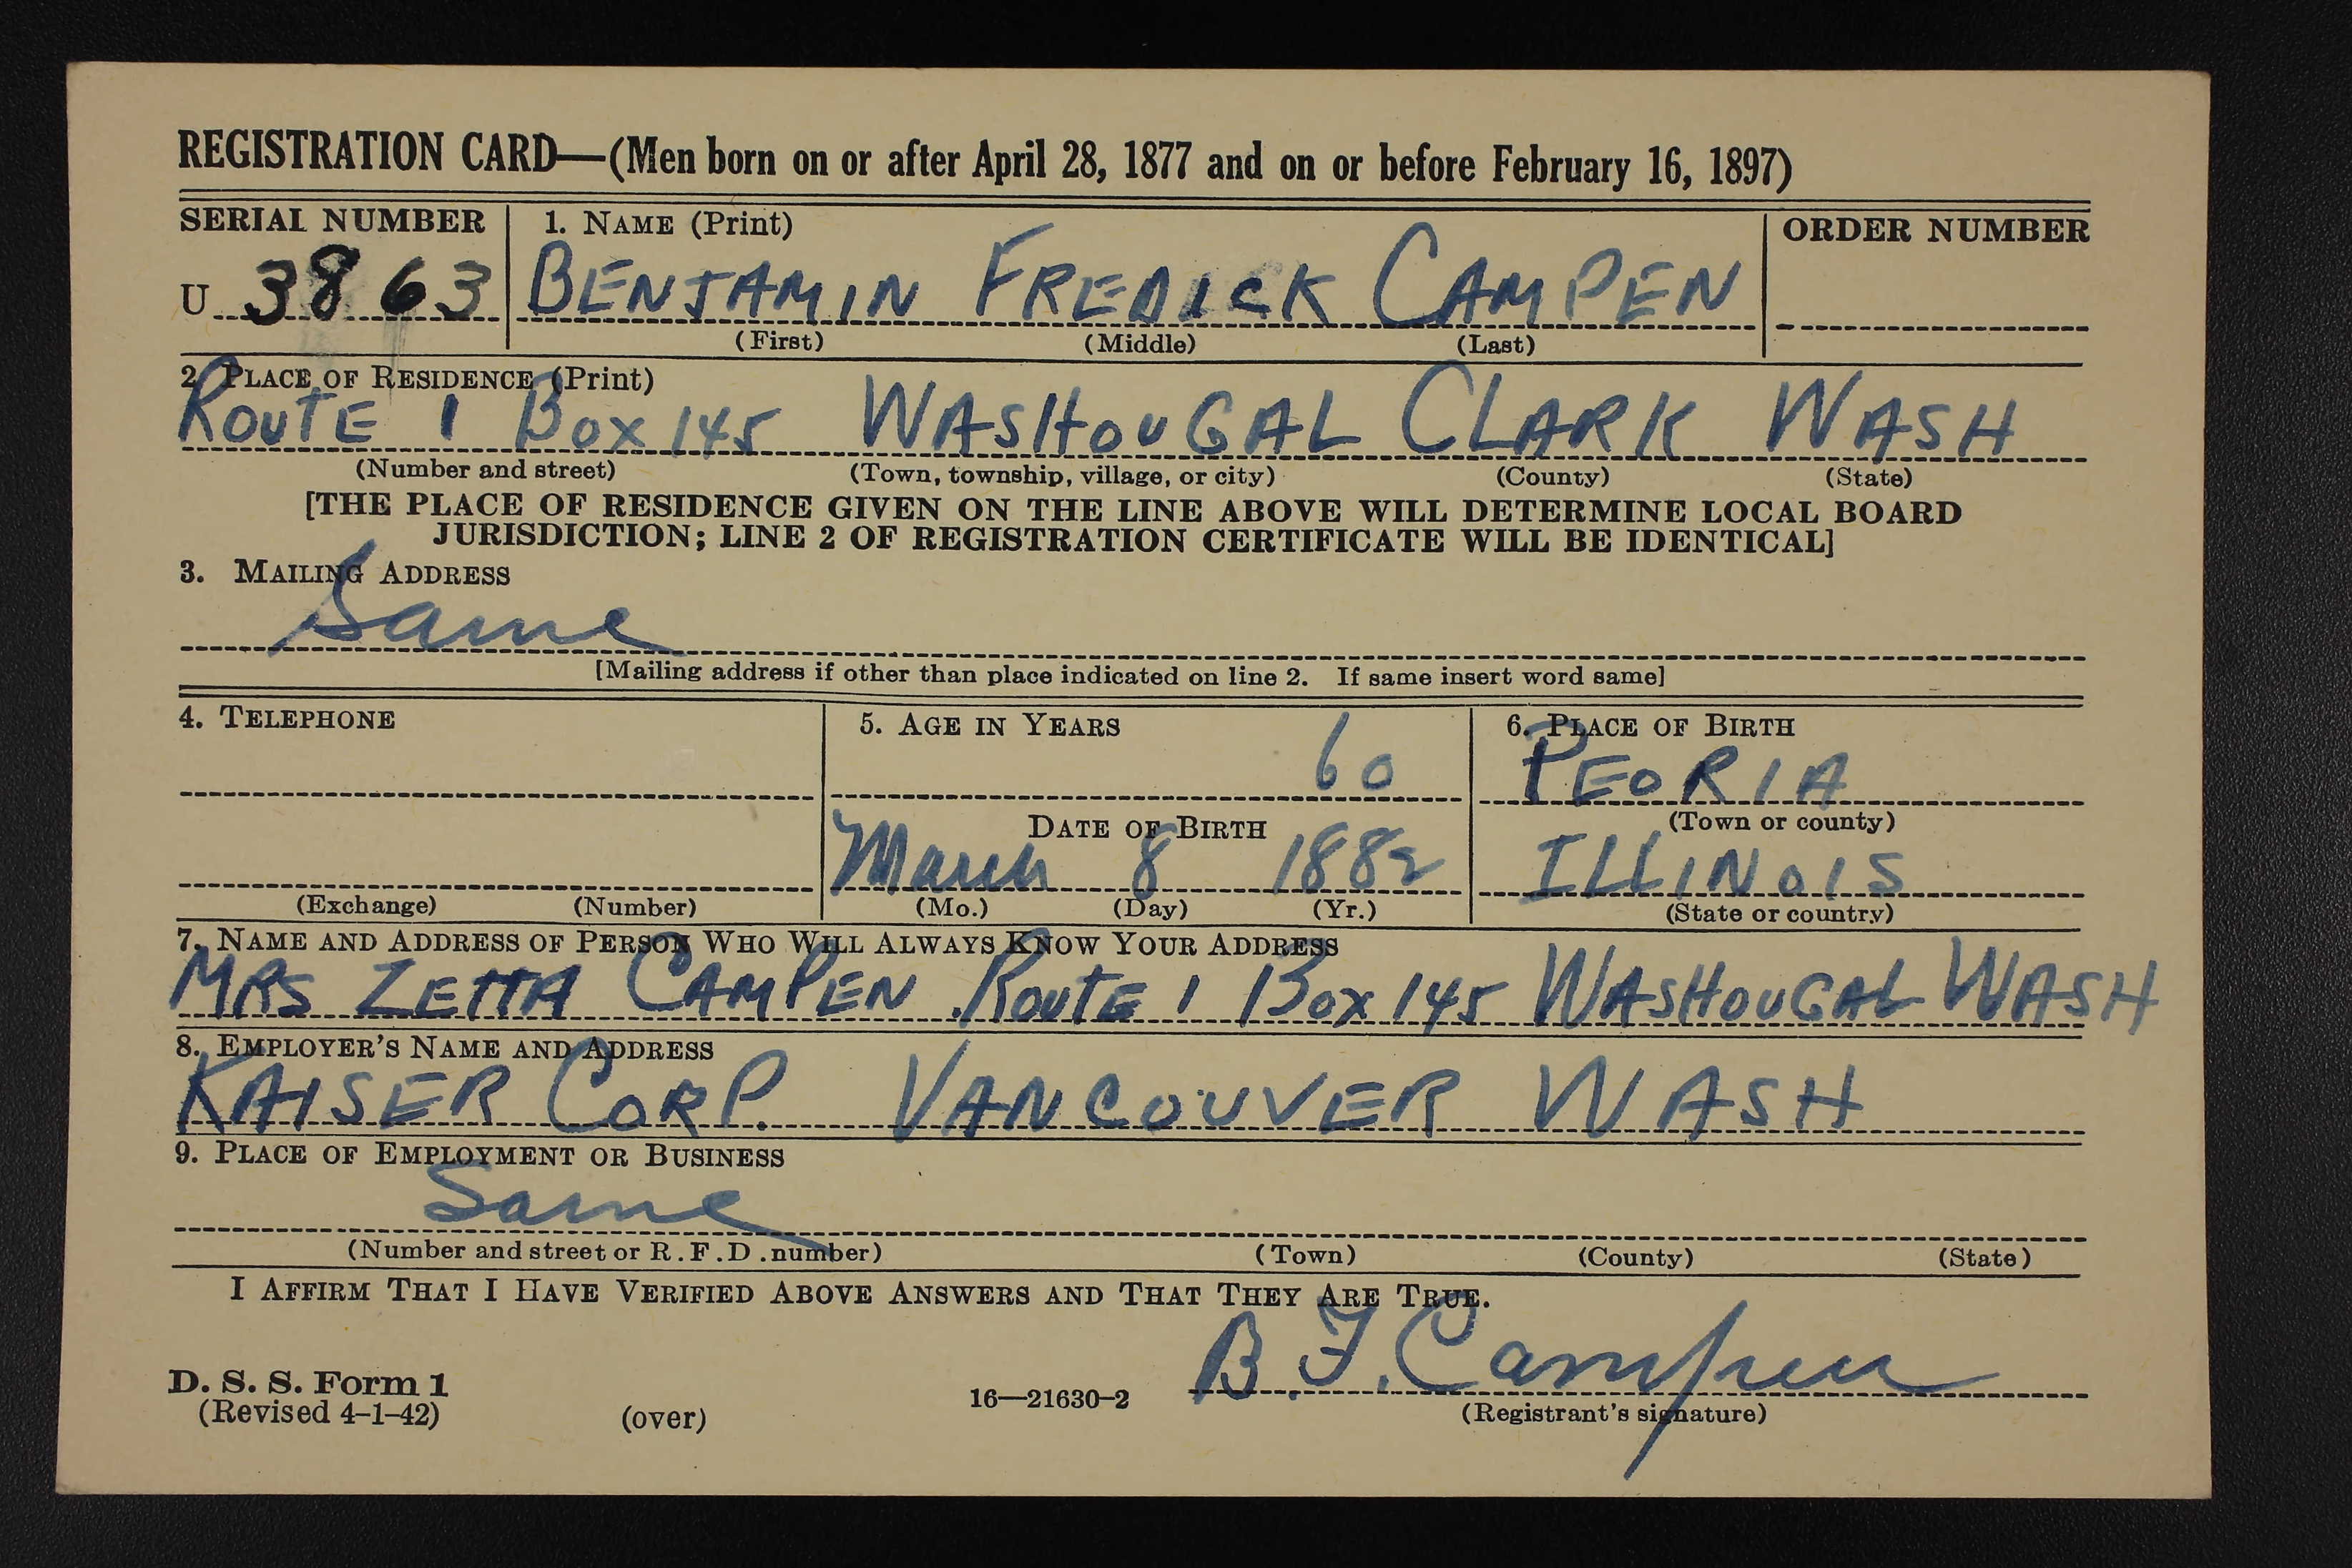 REGISTRATION CARD—(Men born on or after April 28, 1877 and on or before February 16, 1897)
SERIAL NUMBER 1. NAME (Print) ORDER NUMBER
U 3863 BENJAMIN FREDICK CAMPEN
(First) (Middle) (Last)
2. PLACE OF RESIDENCE (Print)
ROUTE 1 BOX 145 WASHOUGAL CLARK WASH
(Number and street) (Town, township, village, or city) (County) (State)
[THE PLACE OF RESIDENCE GIVEN ON THE LINE ABOVE WILL DETERMINE LOCAL BOARD
JURISDICTION; LINE 2 OF REGISTRATION CERTIFICATE WILL BE IDENTICAL]
3. MAILING ADDRESS
Same
[Mailing address if other than place indicated on line 2. If same insert word same]
4. TELEPHONE 5. AGE IN YEARS 6. PLACE OF BIRTH
60 PEORIA
DATE OF BIRTH (Town or county)
March 8 1882 ILLINOIS
(Exchange) (Number) (Mo.) (Day) (Yr.) (State or country)
7. NAME AND ADDRESS OF PERSON WHO WILL ALWAYS KNOW YOUR ADDRESS
MRS ZETTA CAMPEN ROUTE 1 BOX 145 WASHOUGAL WASH
8. EMPLOYER'S NAME AND ADDRESS
KAISER CORP. VANCOUVER WASH
9. PLACE OF EMPLOYMENT OR BUSINESS
Same
(Number and street or R.F.D. number) (Town) (County) (State)
I AFFIRM THAT I HAVE VERIFIED ABOVE ANSWERS AND THAT THEY ARE TRUE.
B. F. Campen
D. S. S. Form 1
(Revised 4-1-42) (over) 16—21630-2 (Registrant's signature)